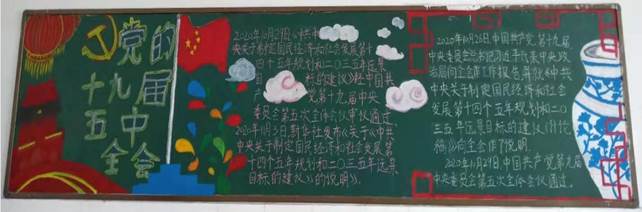 党的
十九届
五中
全会
2020年10月29日《中共中
央关于制定国民经济和社会发展第十
四个五年规划和二〇三五年远景
目标的建议》经中国共
产党第十九届中央
委员会第五次全体会议审议通过。
2020年11月3日新华社发布《关于〈中共
中央关于制定国民经济和社会发展第
十四个五年规划和二〇三五年远景
目标的建议〉的说明》。
2020年10月26日中国共产党第十九届
中央委员会总书记习近平代表中央政
治局向全会作工作报告并就《中共
中央关于制定国民经济和社会
发展第十四个五年规划和二〇
三五年远景目标的建议(讨论
稿)》向全会作了说明
2020年10月29日中国共产党第十九届
中央委员会第五次全体会议通过。